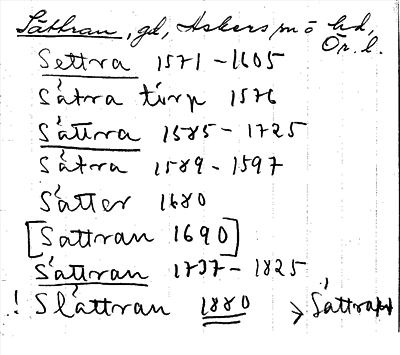 Såttran, gd, Askers sn o hd,
Ör. l.
Settra 1571–1605
Såtra torp 1576
Såttra 1585–1725
Såtra 1589–1597
Såtter 1680
[Sattran 1690]
Såttran 1737–1825
! Slåttran 1880 > Såttran